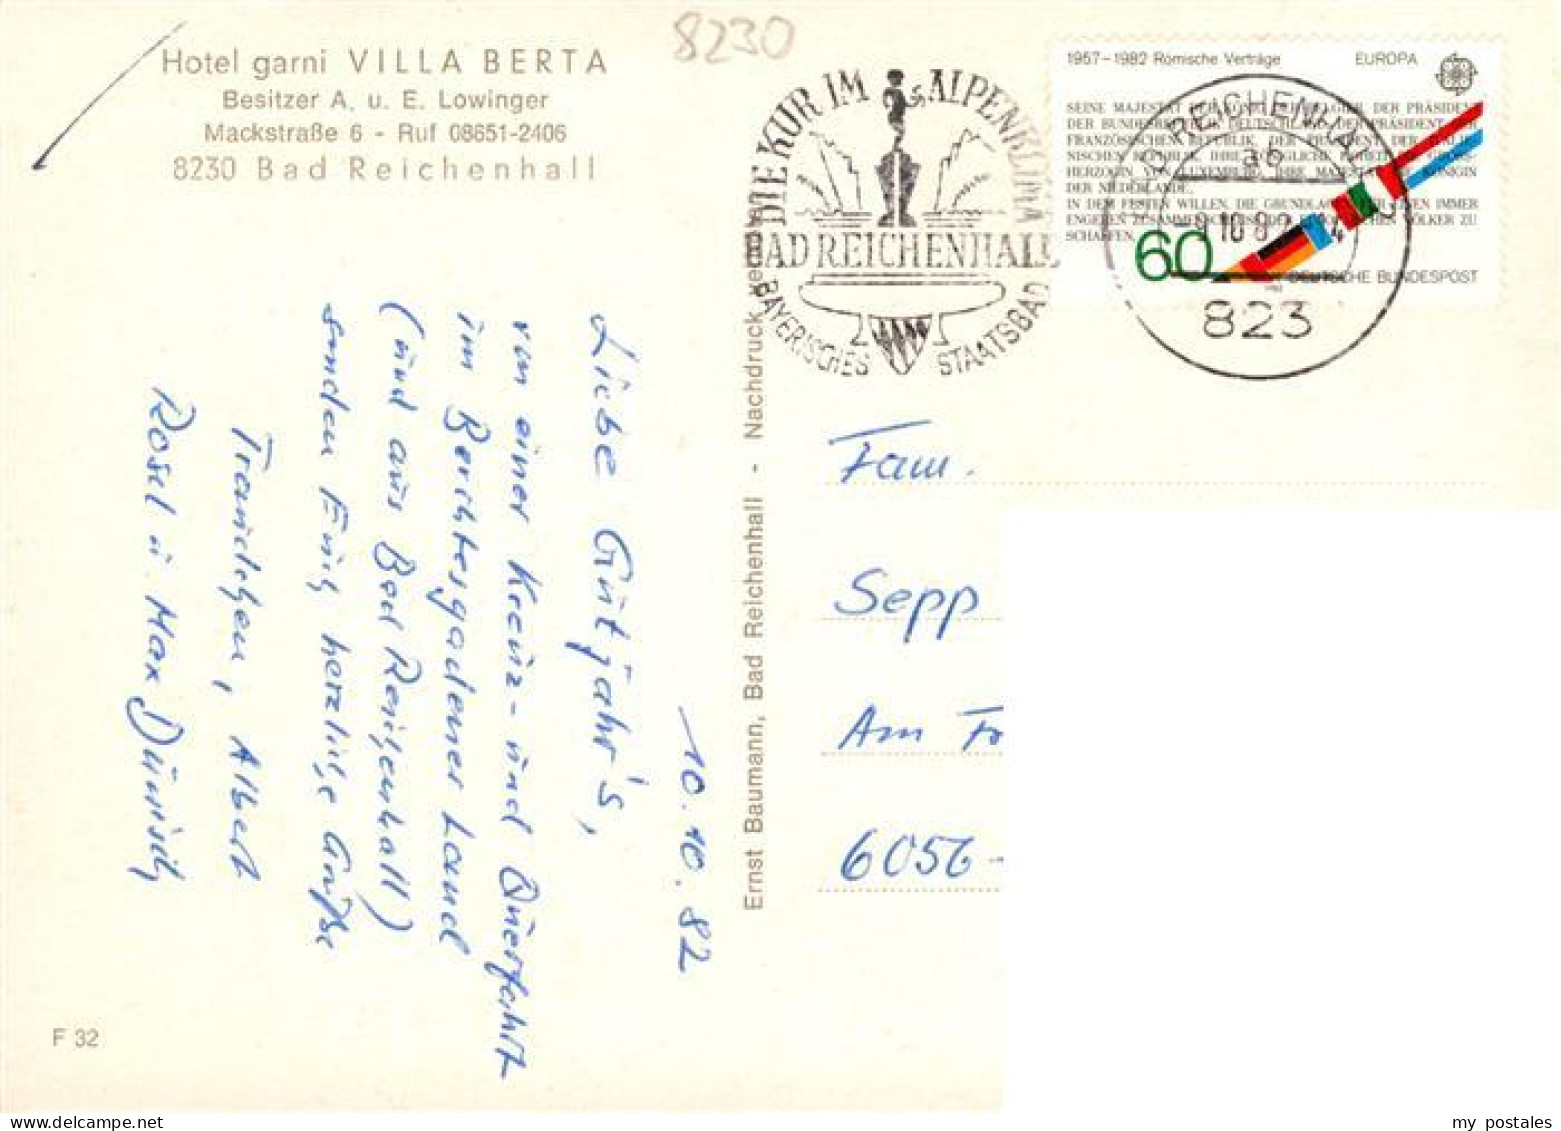 8230
Hotel garni VILLA BERTA
Besitzer A. u. E. Lowinger
Mackstraße 6 - Ruf 08651-2406
8230 Bad Reichenhall
DIE KUR IM ALPENKLIMA
BAD REICHENHALL
BAYERISCHES STAATSBAD
1957–1982 Römische Verträge EUROPA
SEINE MAJESTÄT DER KÖNIG DER BELGIER, DER PRÄSIDENT
DER BUNDESREPUBLIK DEUTSCHLAND, DER PRÄSIDENT DER
FRANZÖSISCHEN REPUBLIK, DER PRÄSIDENT DER ITALIE-
NISCHEN REPUBLIK, IHRE KÖNIGLICHE HOHEIT DIE GROSS-
HERZOGIN VON LUXEMBURG, IHRE MAJESTÄT DIE KÖNIGIN
DER NIEDERLANDE,
IN DEM FESTEN WILLEN, DIE GRUNDLAGEN FÜR EINEN IMMER
ENGEREN ZUSAMMENSCHLUSS DER EUROPÄISCHEN VÖLKER ZU
SCHAFFEN,
60
DEUTSCHE BUNDESPOST
REICHENHALL
ab
10.8
823
10.10.82
Liebe Gutjahr's,
von einer Kreuz- und Querfahrt
im Berchtesgadener Land
(und aus Bad Reichenhall)
senden Euch herzliche Grüße
Traudchen, Albert
Rosel u. Max
Ernst Baumann, Bad Reichenhall - Nachdruck verboten
Fam.
Sepp
Am
6056-
F 32
my postales